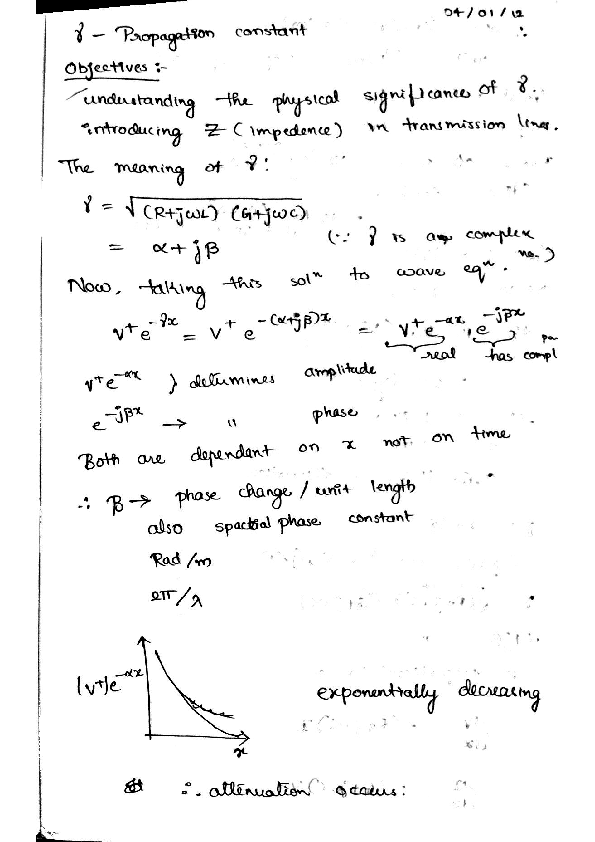 04/01/12
γ - Propagation constant
Objectives :-
understanding the physical significance of γ.
introducing Z (impedence) in transmission lines.
The meaning of γ:
γ = √(R+jωL) (G+jωC)
= α + jβ (∵ γ is a complex no.)
Now, taking this solⁿ to wave eqⁿ.
V⁺e^-γx = V⁺ e^-(α+jβ)x = V⁺e^-αx . e^-jβx
real has compl
V⁺e^-αx } determines amplitude
e^-jβx → " phase
Both are dependant on x not on time
∴ β → phase change / unit length
also spactial phase constant
Rad /m
2π/λ
|V⁺|e^-αx exponentially decreasing
x
∴ attenuation occurs: